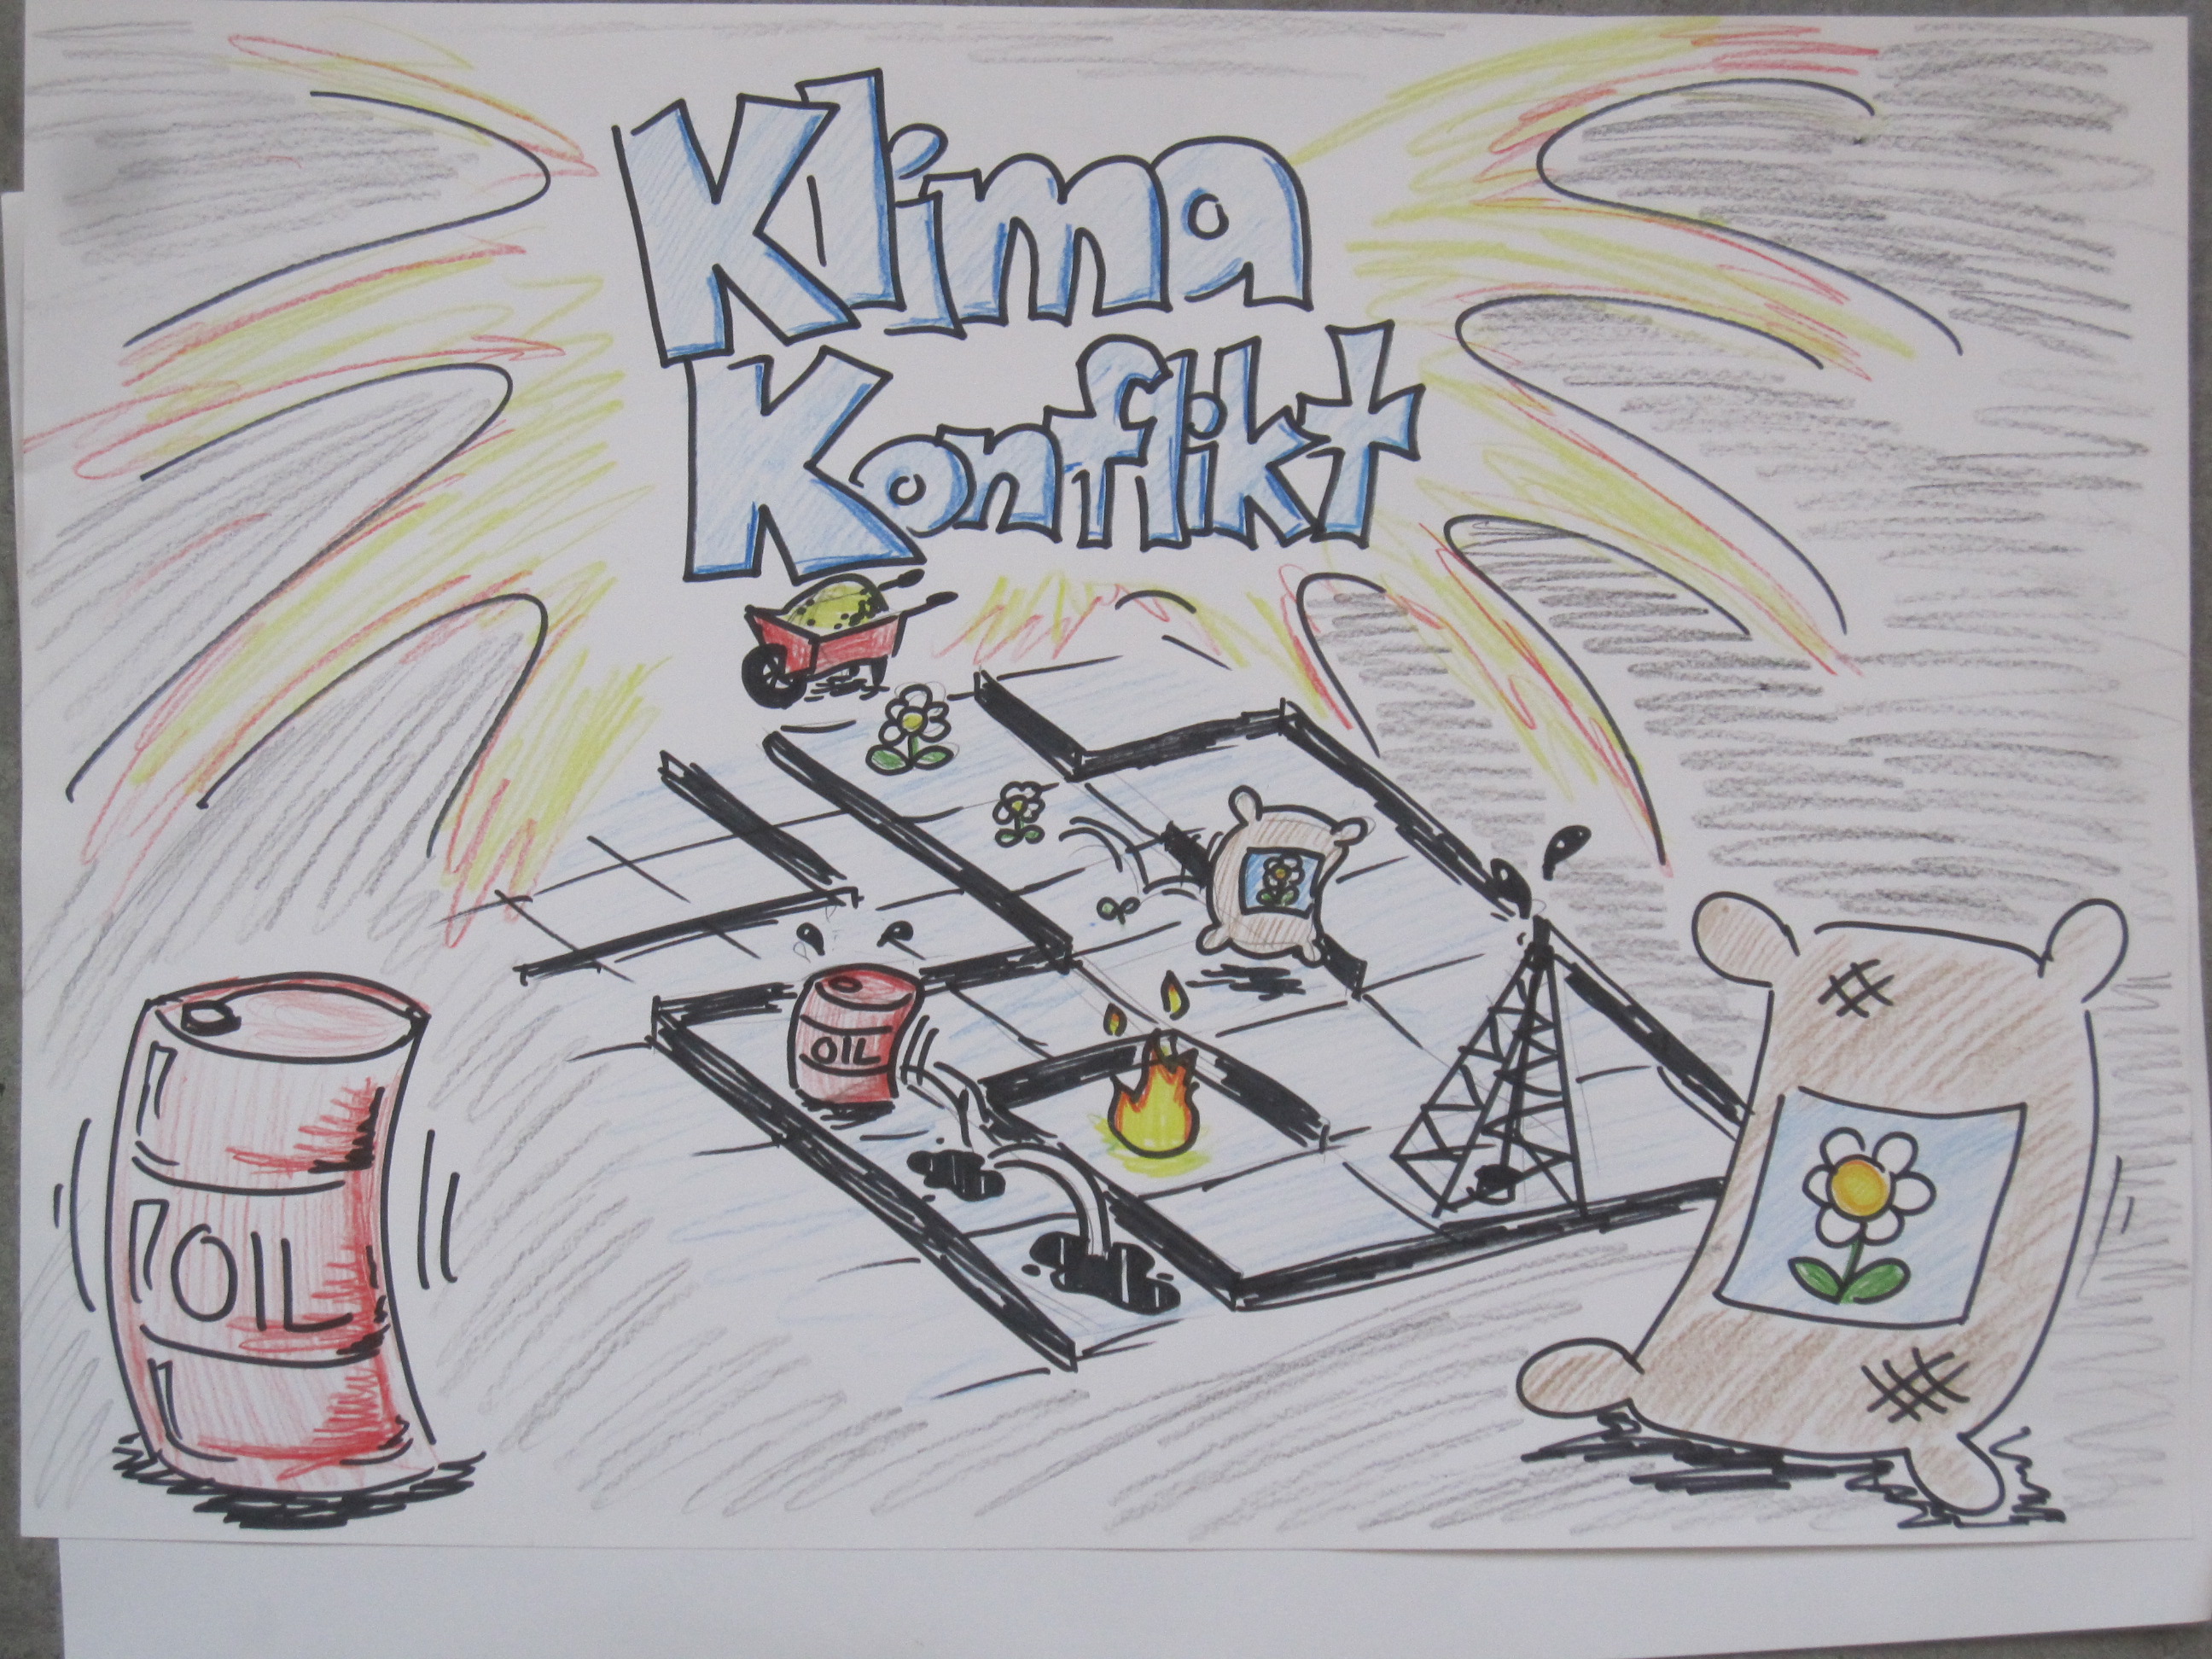 Klima
Konflikt
OIL
OIL